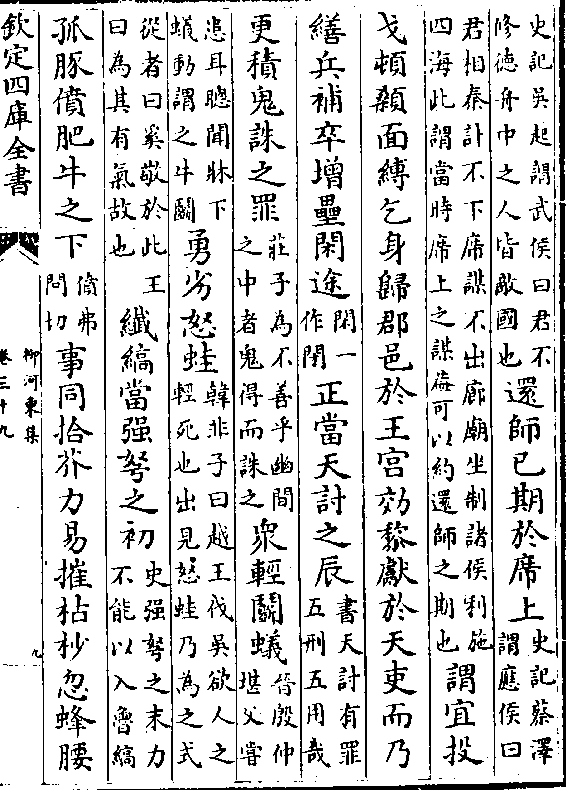 史記吳起謂武侯曰君不
修德舟中之人皆敵國也
還師已期於席上
史記蔡澤
謂應侯曰
君相秦計不下席謀不出廊廟坐制諸侯利施
四海此謂當時席上之謀海可以約還師之期也
謂宜投
戈頓顙面縛乞身歸郡邑於王宫效黎獻於天吏而乃
繕兵補卒增壘閑途
閑一
作閉
正當天討之辰
書天討有罪
五刑五用哉
更積鬼誅之罪
莊子為不善乎幽間
之中者鬼得而誅之
衆輕鬭蟻
晉殷仲
堪父嘗
患耳聰聞牀下
蟻動謂之牛鬭
勇劣怒蛙
韓非子曰越王伐吳欲人之
輕死也出見怒蛙乃為之式
從者曰奚敬於此王
曰為其有氣故也
纖縞當强弩之初
史强弩之末力
不能以入魯縞
孤豚僨肥牛之下
僨弗
問切
事同拾芥力易摧枯杪忽蜂腰
欽定四庫全書
柳河東集
卷三十九
九